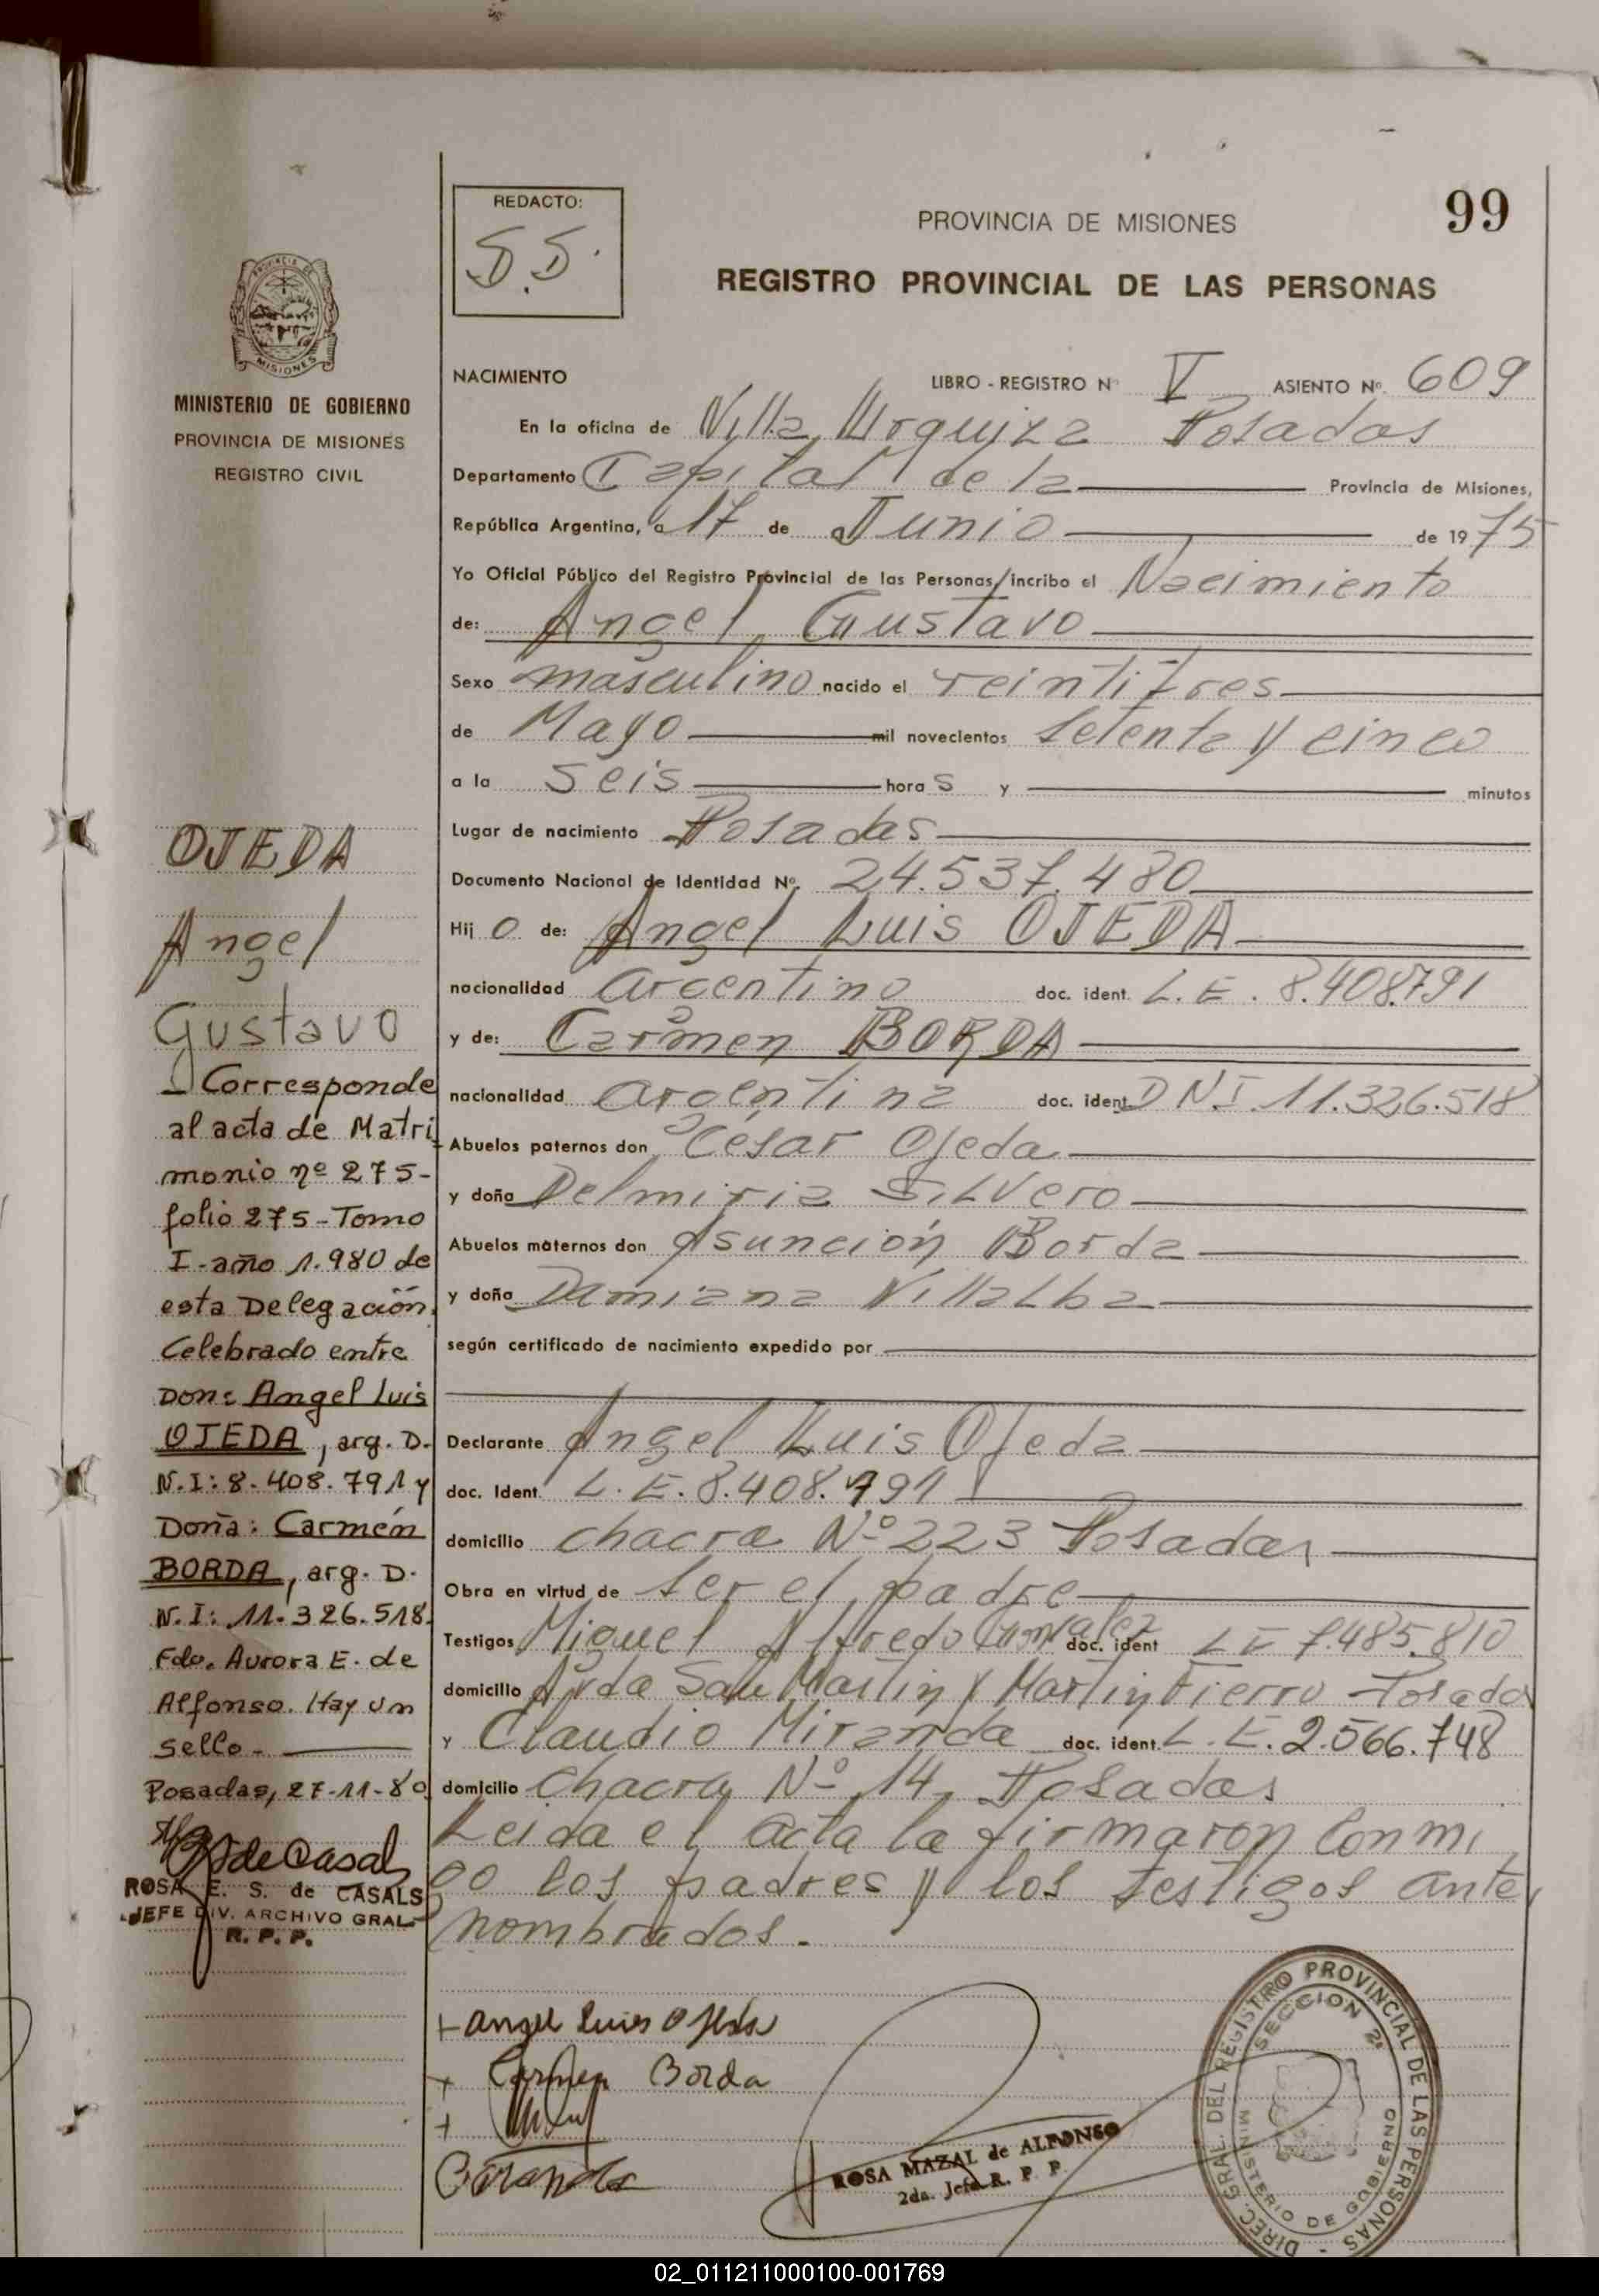 99
REDACTO:
S.S.
PROVINCIA DE MISIONES
REGISTRO PROVINCIAL DE LAS PERSONAS
PROVINCIA DE
MISIONES
MINISTERIO DE GOBIERNO
PROVINCIA DE MISIONES
REGISTRO CIVIL
NACIMIENTO LIBRO - REGISTRO Nº V ASIENTO Nº 609
En la oficina de Villa Urquiza Posadas
Departamento Capital de la Provincia de Misiones,
República Argentina, a 17 de Junio de 1975
Yo Oficial Público del Registro Provincial de las Personas, incribo el Nacimiento
de: Angel Gustavo
Sexo masculino nacido el veintitres
de Mayo mil novecientos setenta y cinco
a la seis hora s y minutos
Lugar de nacimiento Posadas
Documento Nacional de Identidad Nº 24.537.480
Hij o de: Angel Luis OJEDA
nacionalidad argentino doc. ident. L.E. 8.408.791
y de: Carmen BORDA
nacionalidad argentina doc. ident. DNI 11.326.518
Abuelos paternos don César Ojeda
y doña Delmiria SILVero
Abuelos maternos don Asunción Borda
y doña Damiana Villalba
según certificado de nacimiento expedido por
Declarante Angel Luis Ojeda
doc. Ident. L.E. 8.408.791
domicilio chacra Nº 223 Posadas
Obra en virtud de ser el padre
Testigos Miguel Alfredo Gonzalez doc. ident LE 7.485.810
domicilio Avda San Martin y Martin Fierro Posadas
y Claudio Miranda doc. ident. L.E. 2.566.748
domicilio chacra Nº 14, Posadas
Leida el acta la firmaron conmi
go los padres y los testigos ante
nombrados.-
OJEDA
Angel
Gustavo
Corresponde
al acta de Matri
monio nº 275-
folio 275-Tomo
I-año 1.980 de
esta Delegación.
Celebrado entre
Don: Angel Luis
OJEDA, arg. D.
N.I: 8.408.791 y
Doña: Carmén
BORDA, arg. D.
N.I: 11.326.518.
Fdo. Aurora E. de
Alfonso. Hay un
sello.-
Posadas, 27-11-80
de Casals
ROSA E. S. de CASALS
JEFE DIV. ARCHIVO GRAL
R. P. P.
Angel Luis Ojeda
Carmen Borda
ROSA MAZAL de ALFONSO
2da. Jefa R. P. P.
DIREC. GRAL. DEL REGISTRO PROVINCIAL DE LAS PERSONAS -
SECCION 2ª
MINISTERIO DE GOBIERNO
02_011211000100-001769